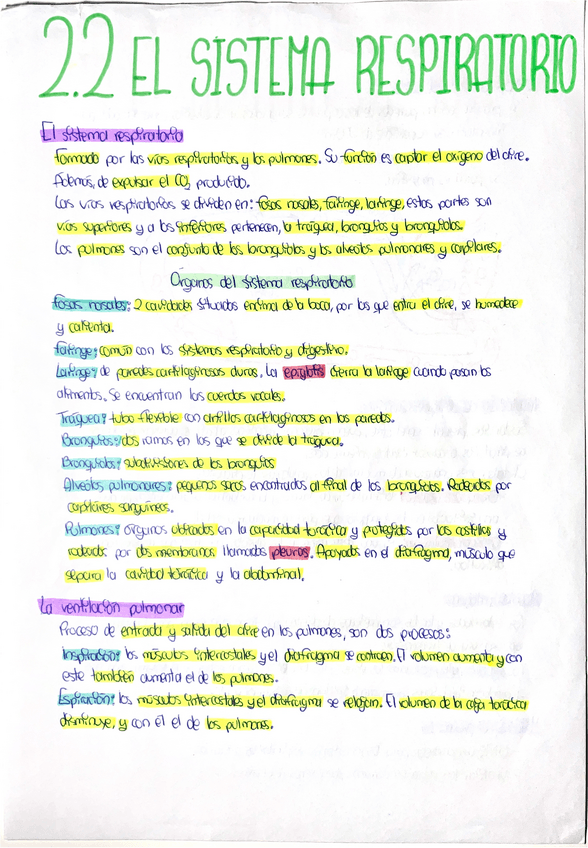 2.2 EL SISTEMA RESPIRATORIO
El sistema respiratorio
Formado por las vías respiratorias y los pulmones. Su función es captar el oxígeno del aire.
Además, de expulsar el CO2 producido.
Las vías respiratorias se dividen en: fosas nasales, faringe, laringe, estas partes son
vías superiores y a las inferiores pertenecen, la tráquea, bronquios y bronquiolos.
Los pulmones son el conjunto de los bronquiolos y los alveolos pulmonares y capilares.
Órganos del sistema respiratorio
Fosas nasales: 2 cavidades situadas encima de la boca, por las que entra el aire, se humedece
y calienta.
Faringe: común con los sistemas respiratorio y digestivo.
Laringe: de paredes cartilaginosas duras. La epiglotis cierra la laringe cuando pasan los
alimentos. Se encuentran las cuerdas vocales.
Tráquea: tubo flexible con anillos cartilaginosos en las paredes.
Bronquios: dos ramas en las que se divide la tráquea.
Bronquiolos: subdivisiones de los bronquios
Alveolos pulmonares: pequeños sacos encontrados al final de los bronquiolos. Rodeados por
capilares sanguíneos.
Pulmones: órganos ubicados en la capacidad torácica y protegidos por las costillas y
rodeados por dos membranas llamadas pleuras. Apoyados en el diafragma, músculo que
separa la cavidad torácica y la abdominal.
La ventilación pulmonar
Proceso de entrada y salida del aire en los pulmones, son dos procesos:
Inspiración: los músculos intercostales y el diafragma se contraen. El volumen aumenta y con
este también aumenta el de los pulmones.
Espiración: los músculos intercostales y el diafragma se relajan. El volumen de la caja torácica
disminuye, y con él el de los pulmones.